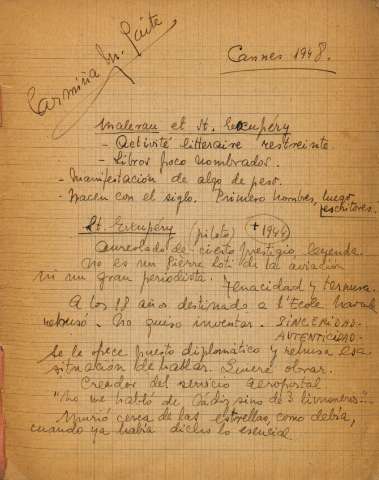 Carmiña M. Gaite
Cannes 1948.
Malraux et St. Exupéry
- Activité littéraire restreinte
- Libros poco nombrados.
- Manifestación de algo de peso.
- Nacen con el siglo. Primero hombres, luego
escritores.
St. Exupéry (piloto) († 1944)
Aureolado de cierto prestigio, leyenda
No es un Pierre Loti de la aviación
ni un gran periodista. tenacidad y ternura.
A los 18 años destinado a l'Ecole Navale
rehusó. No quiso inventar. SINCERIDAD-
AUTENTICIDAD-
Se le ofrece puesto diplomático y rehusa esa
situación de hablar. Quiere obrar.
Creador del servicio aeropostal
"No me habló de Cádiz sino de 3 limoneros"-
Murió cerca de las estrellas, como debía,
cuando ya había dicho lo esencial.